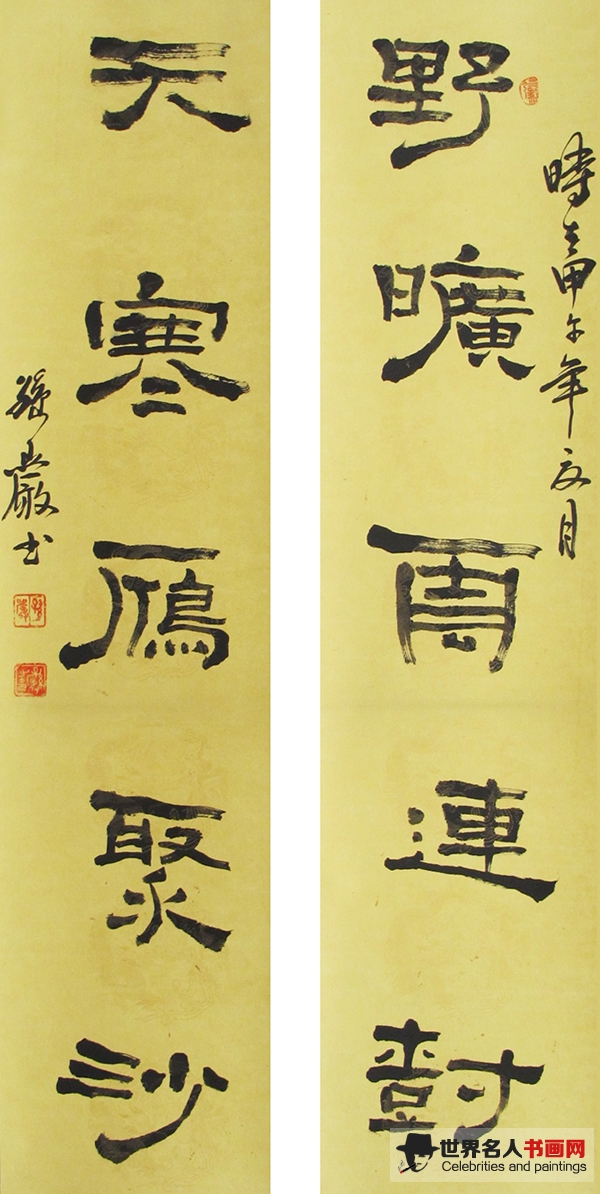 野曠雨連樹
時在甲午年夏月
天寒雁聚沙
嚴書
世界名人书画网
Celebrities and paintings